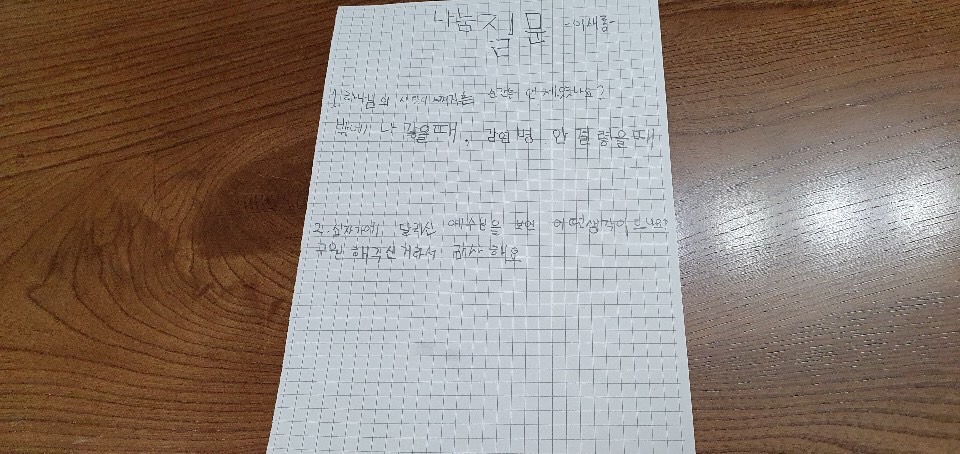 나눔질문 -이새롬-
1. 하나님의 사랑이 느껴지는 순간은 언제였나요?
밖에 나 갔을때, 감염병 안 걸렸을때
2. 십자가에 달리신 예수님을 보면 어떤생각이 드나요?
구원 해주신거라서 감사해요